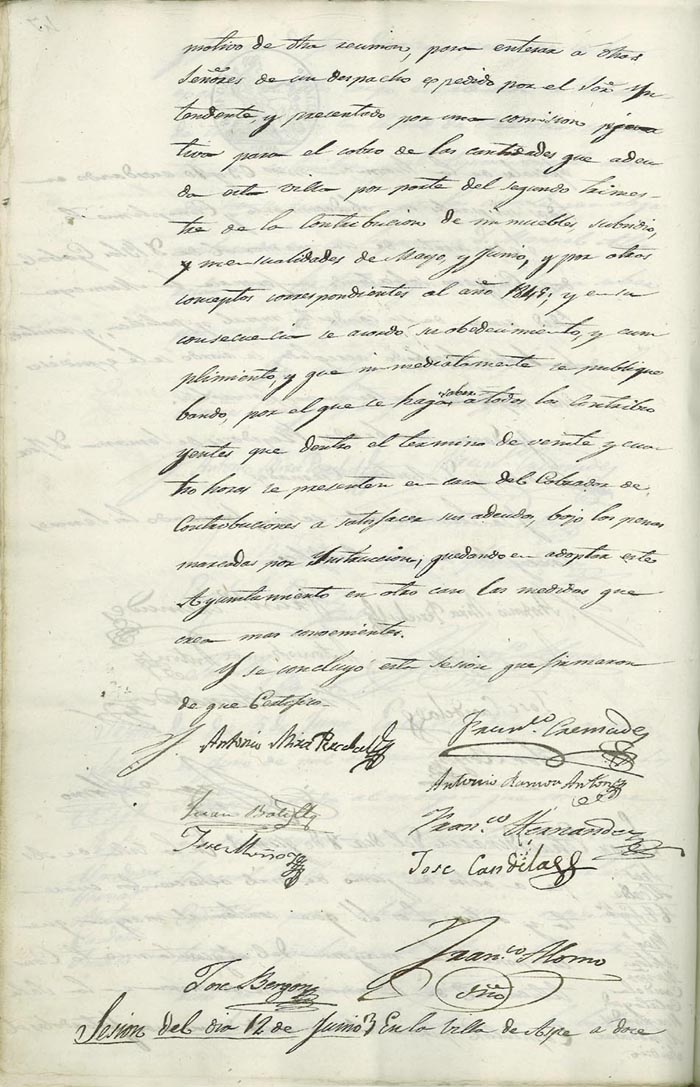 motivo de dha reunion, para enterar a dhos
Señores de un despacho expedido por el Sor Yn-
tendente y presentado por una comision
tiva para el cobro de las cantidades que adeu
da esta villa por parte del segundo trimes-
tre de la Contribucion de inmuebles subsidio,
y mensualidades de Mayo, y Junio, y por otros
conceptos correspondientes al año 1848; y en su
consecuencia se acordó su obedecimiento, y cum
plimiento, y que inmediatamente se publique
bando, por el que se haga saber a todos los Contribu
yentes que dentro el termino de veinte y cua
tro horas se presenten en casa del Cobrador de
Contribuciones a satisfacer sus adeudos, bajo las penas
marcadas por Instruccion; quedando en adoptar este
Ayuntamiento en otro caso las medidas que
crea mas convenientes.
Y se concluyó esta sesion que firmaron
de que Certifico.
Antonio Mira Francco Cremades
Antonio
Juan Botella Franco Hernandez
Jose Muñoz Jose Candela
Franco Alorno
Jose Srio
Sesion del dia 12 de Junio En la Villa de Aspe a doce